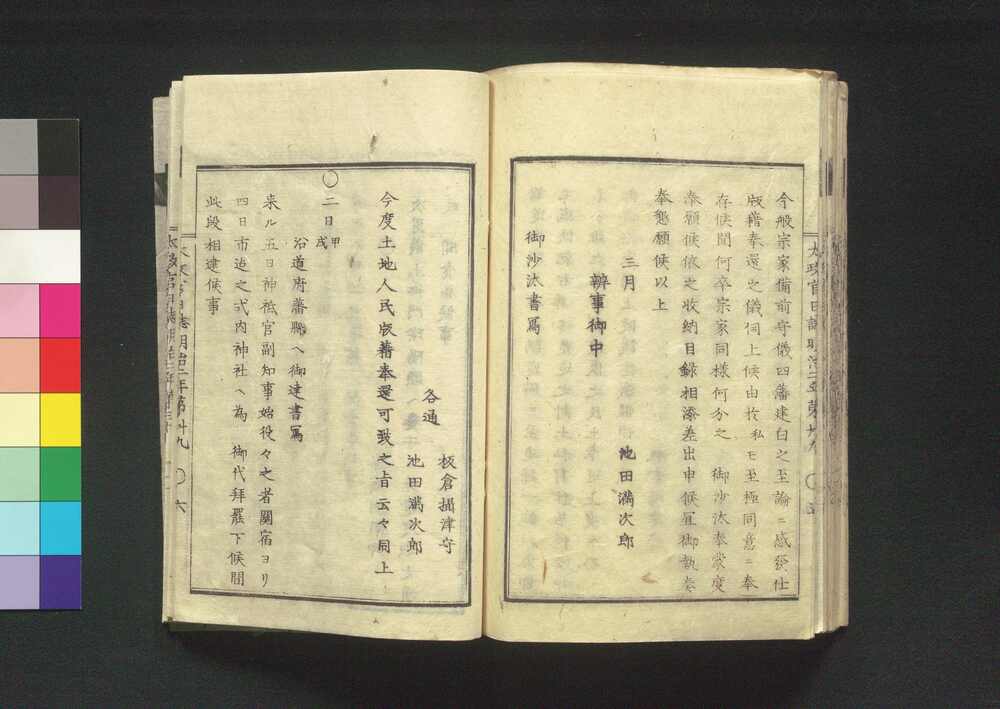 今般宗家備前守儀四藩建白之至論ニ感発仕
版籍奉還之儀伺上候由於私モ至極同意ニ奉
存候間何卒宗家同様何分之 御沙汰奉蒙度
奉願候依之収納目録相添差出申候宜御執奏
奉懇願候以上
三月 池田満次郎
辨事御中
御沙汰書写
板倉摂津守
各通 池田満次郎
今度土地人民版籍奉還可致之旨云々同上
〇二日甲戌
沿道府藩縣ヘ御達書写
来ル五日神祇官副知事始役々之者關宿ヨリ
四日市迄之式内神社ヘ為 御代拝罷下候間
此段相達候事
太政官日誌明治二年第卅九 〇六